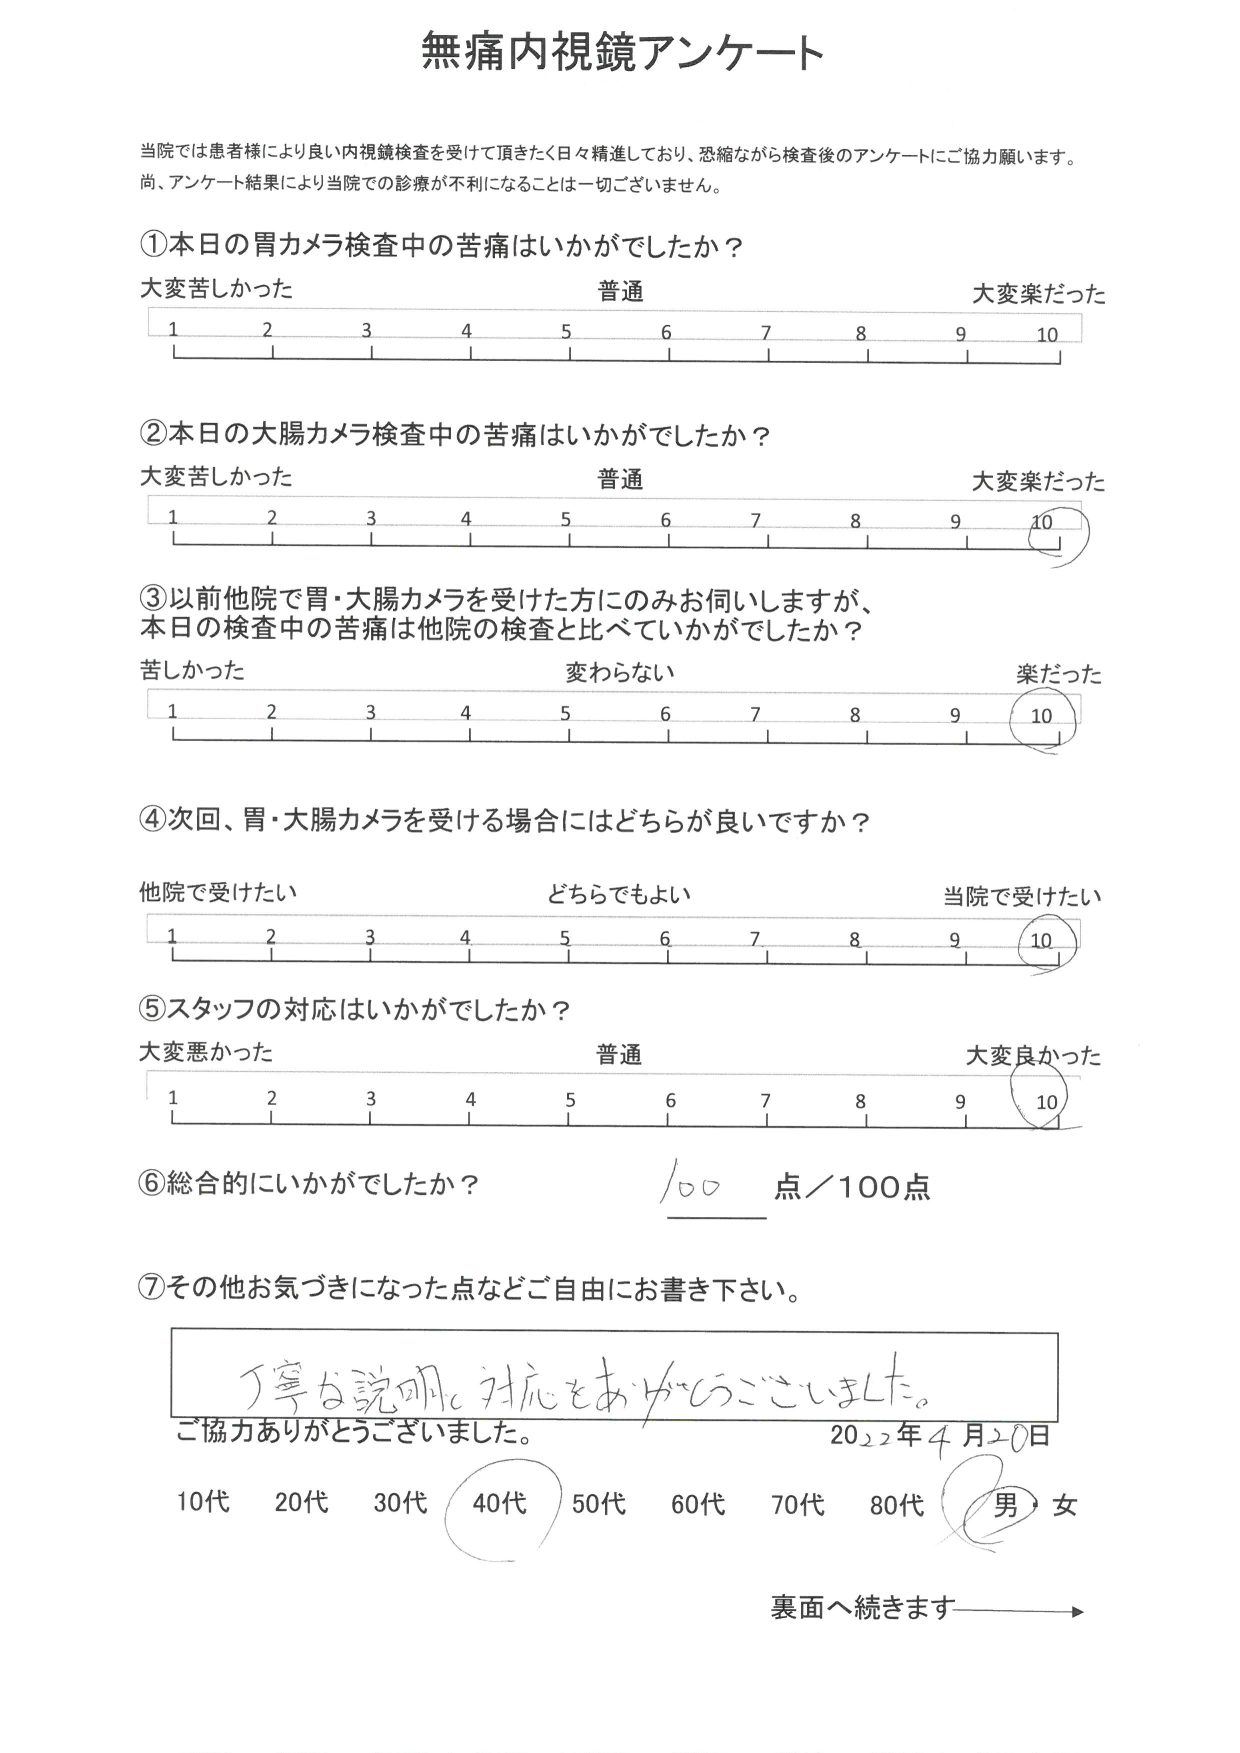 無痛内視鏡アンケート
当院では患者様により良い内視鏡検査を受けて頂きたく日々精進しており、恐縮ながら検査後のアンケートにご協力願います。
尚、アンケート結果により当院での診療が不利になることは一切ございません。
①本日の胃カメラ検査中の苦痛はいかがでしたか？
大変苦しかった 普通 大変楽だった
1 2 3 4 5 6 7 8 9 10
②本日の大腸カメラ検査中の苦痛はいかがでしたか？
大変苦しかった 普通 大変楽だった
1 2 3 4 5 6 7 8 9 10
③以前他院で胃・大腸カメラを受けた方にのみお伺いしますが、
本日の検査中の苦痛は他院の検査と比べていかがでしたか？
苦しかった 変わらない 楽だった
1 2 3 4 5 6 7 8 9 10
④次回、胃・大腸カメラを受ける場合にはどちらが良いですか？
他院で受けたい どちらでもよい 当院で受けたい
1 2 3 4 5 6 7 8 9 10
⑤スタッフの対応はいかがでしたか？
大変悪かった 普通 大変良かった
1 2 3 4 5 6 7 8 9 10
⑥総合的にいかがでしたか？ 100 点／100点
⑦その他お気づきになった点などご自由にお書き下さい。
丁寧な説明、対応をありがとうございました。
ご協力ありがとうございました。 2022年4月20日
10代 20代 30代 40代 50代 60代 70代 80代 男・女
裏面へ続きます